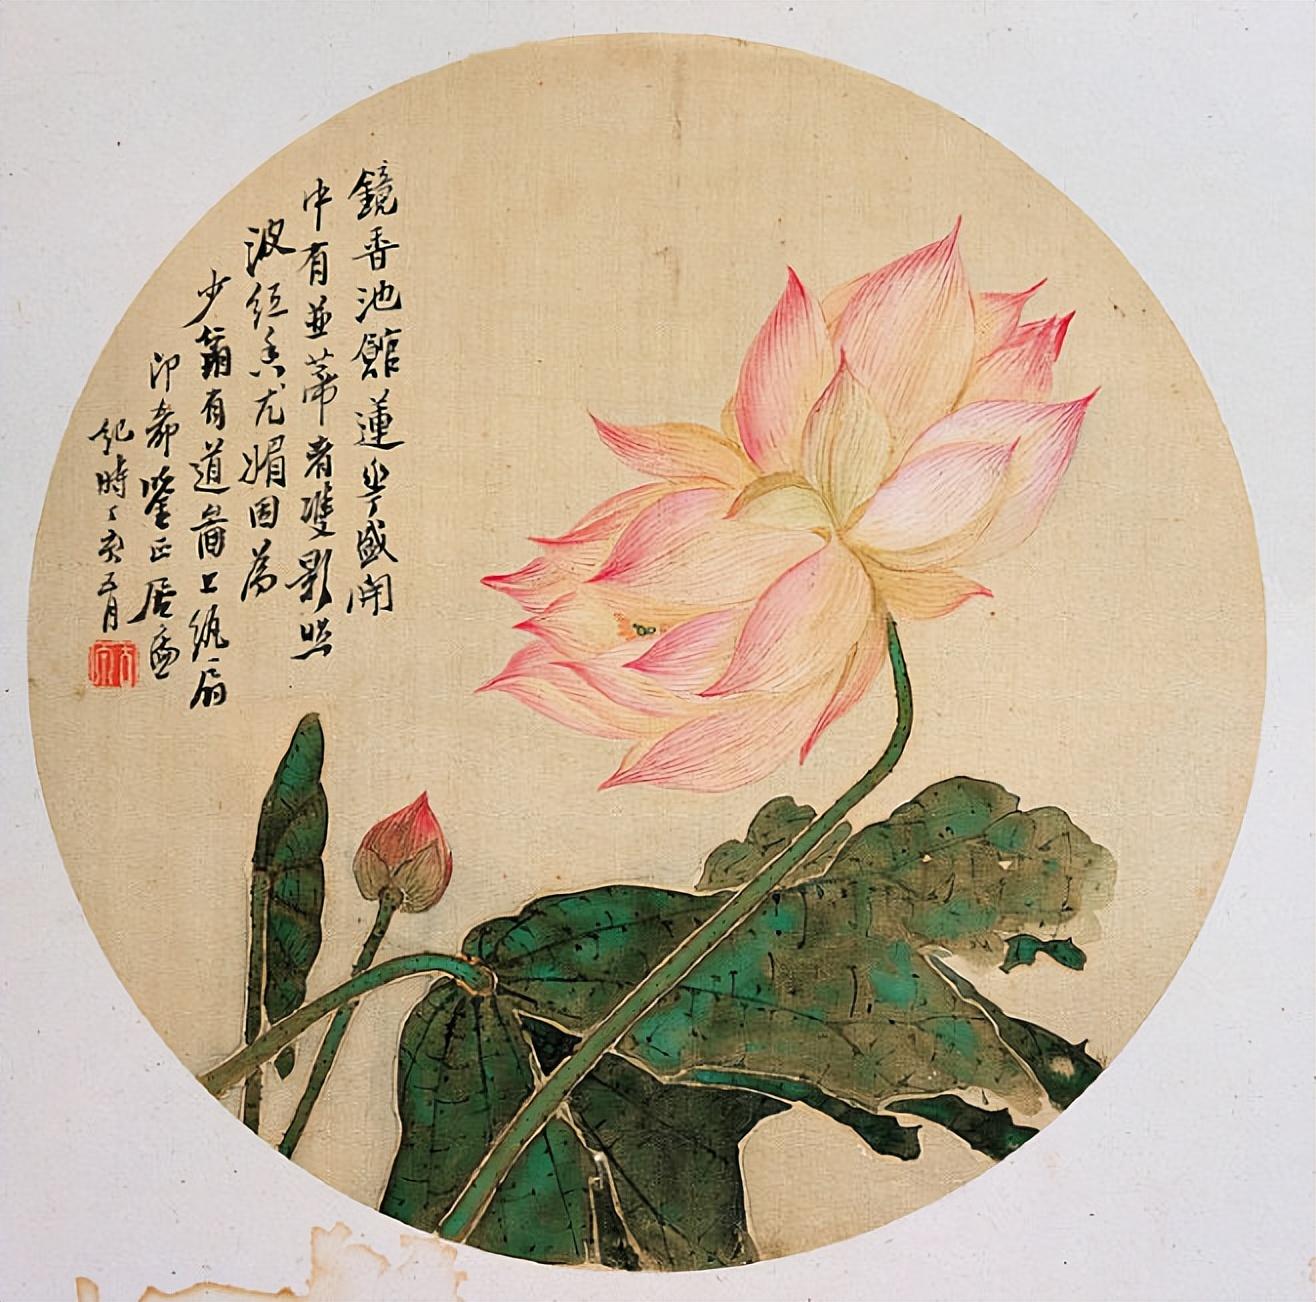 鏡香池館蓮花盛開
中有並蒂者雙影照
波紅香尤媚因爲
少翁有道啚之紈扇
即希鑒正居廉
記時丁亥五月